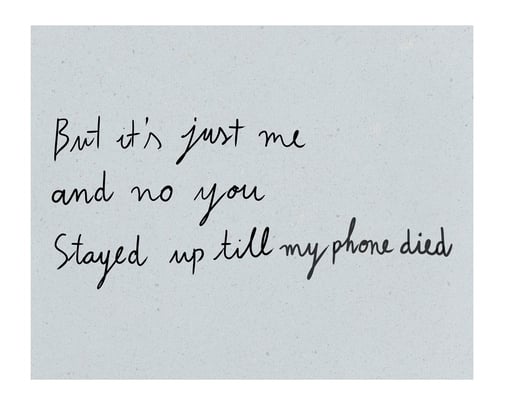 But it's just me
and no you
Stayed up till my phone died